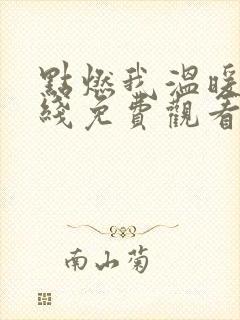 點燃我溫暖
綫免費觀看
南山菊